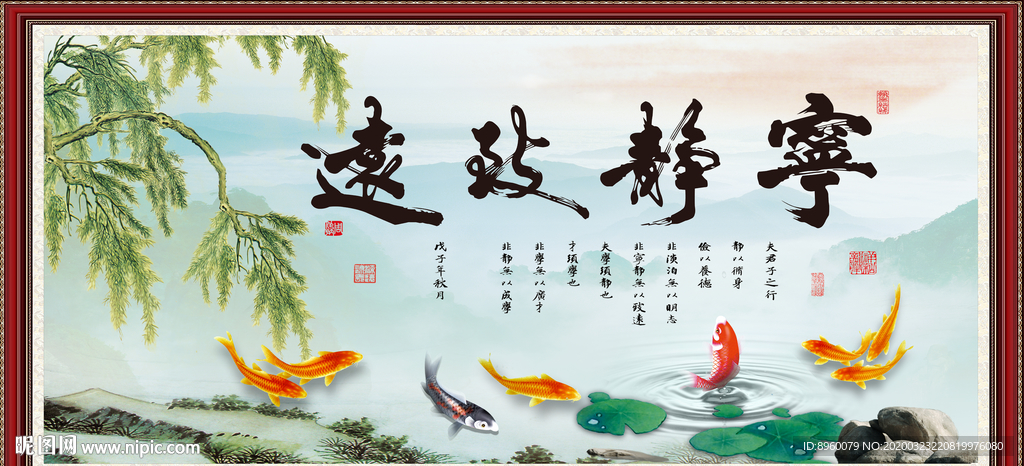 寧靜致遠
夫君子之行
靜以脩身
儉以養德
非淡泊無以明志
非寧靜無以致遠
夫學須靜也
才須學也
非學無以廣才
非靜無以成學
戊子年秋月
昵图网 www.nipic.com
ID:8960079 NO:20200323220819976080